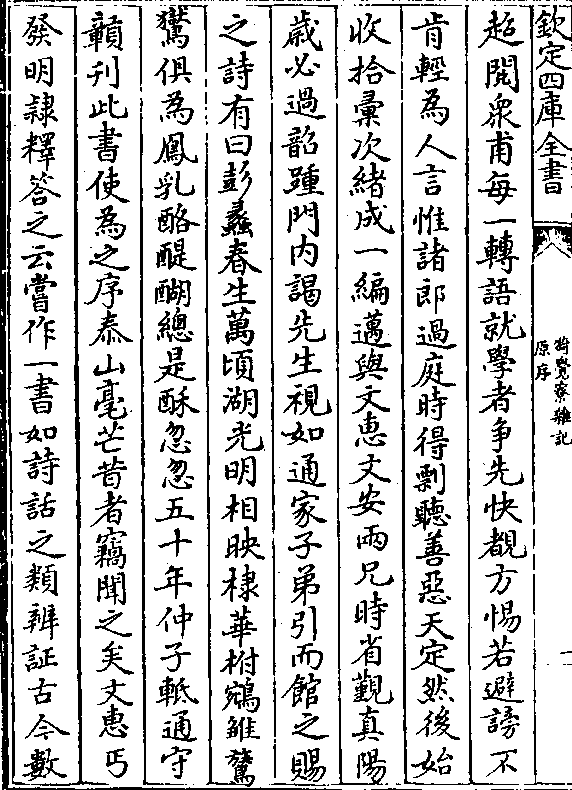 欽定四庫全書
猗覺寮雜記
原序
超閱衆甫每一轉語就學者争先快覩方惕若避謗不
肯輕為人言惟諸郎過庭時得剽聽善惡天定然後始
收拾彚次緒成一編邁與文惠文安兩兄時省覲真陽
歲必過韶踵門内謁先生視如通家子弟引而館之賜
之詩有曰彭蠡春生萬頃湖光明相映棣華柎鵷雛鸑
鷟俱為鳳乳酪醍醐總是酥忽忽五十年仲子軧通守
贑刋此書使為之序泰山毫芒昔者竊聞之矣文惠丐
發明隷釋答之云嘗作一書如詩話之類辨証古今數